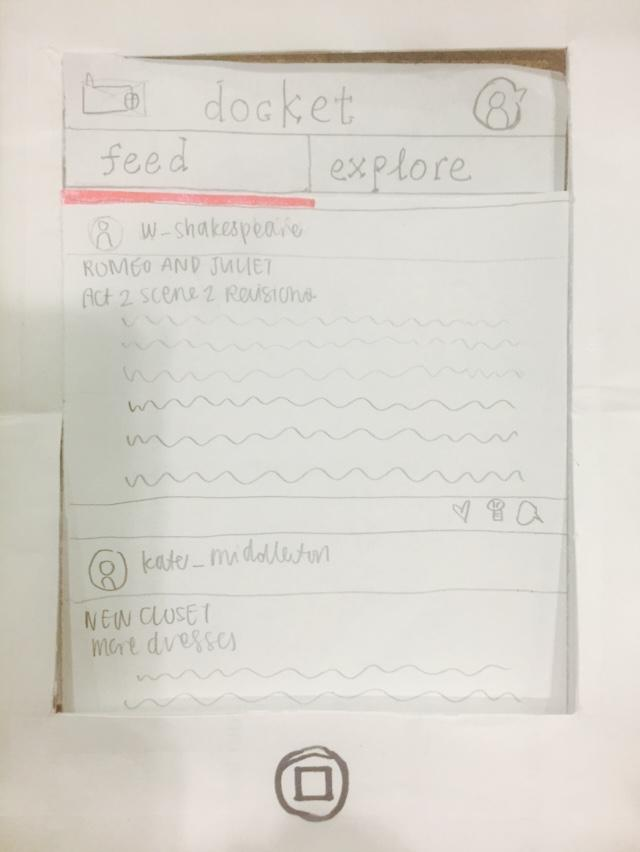 docket
feed
explore
w_shakespeare
ROMEO AND JULIET
Act 2 scene 2 Revisions
kate_middleton
NEW CLOSET
more dresses